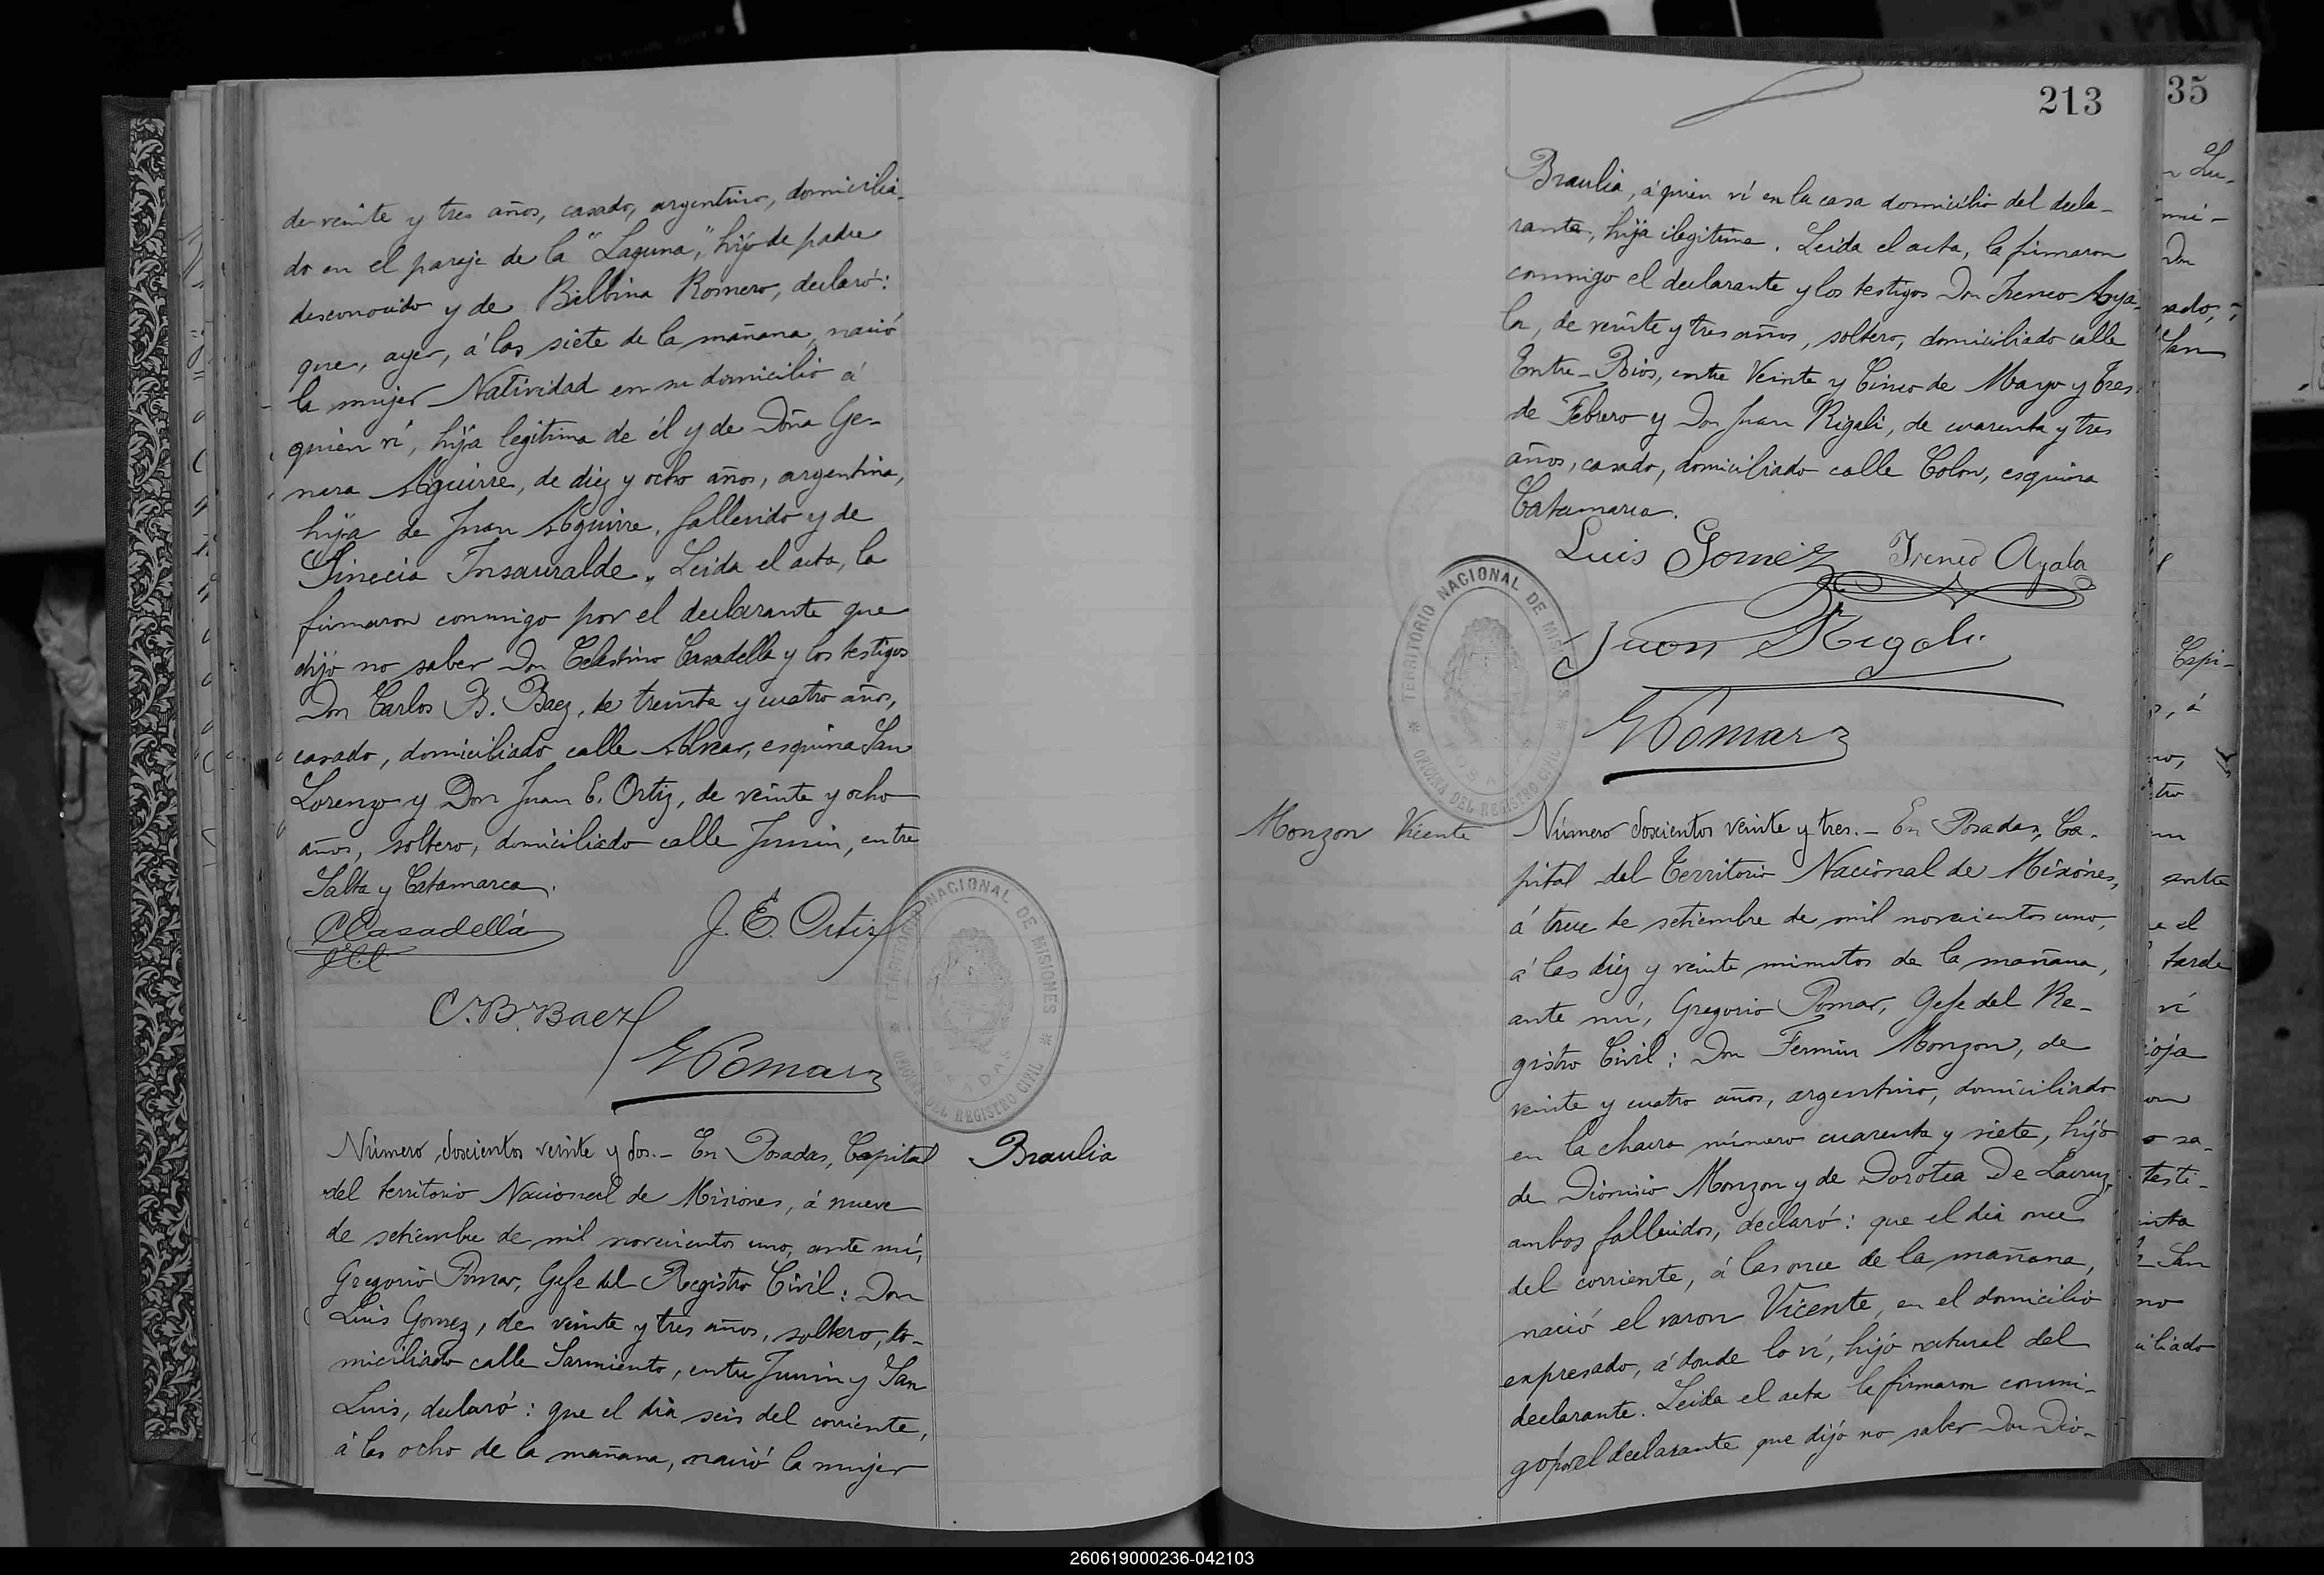 de veinte y tres años, casado, argentino, domicilia-
do en el paraje de la "Laguna," hijo de padre
desconocido y de Bilbina Romero, declaró:
que, ayer, á las siete de la mañana, nació
la mujer Natividad en su domicilio á
quien ví, hija legitima de él y de Doña Ge-
nara Aguirre, de diez y ocho años, argentina,
hija de Juan Aguirre, fallecido y de
Insauralde. Leida el acta, la
firmaron conmigo por el declarante que
dijo no saber Don Celestino Casadella y los testigos
Don Carlos B. Baez, de treinta y cuatro años,
casado, domiciliado calle Alvear, esquina San
Lorenzo y Don Juan E. Ortiz, de veinte y ocho
años, soltero, domiciliado calle Junin, entre
Salta y Catamarca.
CCasadellá
J. E. Ortiz
C. B. Baez
GPomar
TERRITORIO NACIONAL DE MISIONES
POSADAS
OFICINA DEL REGISTRO CIVIL
Braulia
Número doscientos veinte y dos.- En Posadas, Capital
del territorio Nacional de Misiones, á nueve
de setiembre de mil novecientos uno, ante mí,
Gregorio Pomar, Gefe del Registro Civil: Don
Luis Gomez, de veinte y tres años, soltero, do-
miciliado calle Sarmiento, entre Junin y San
Luis, declaró: que el dia seis del corriente,
á las ocho de la mañana, nació la mujer
213
Braulia, á quien ví en la casa domicilio del decla-
rante, hija ilegitima. Leida el acta, la firmaron
conmigo el declarante y los testigos Don Ireneo Aya-
la, de veinte y tres años, soltero, domiciliado calle
Entre-Rios, entre Veinte y Cinco de Mayo y Tres
de Febrero y Don Juan Rigali, de cuarenta y tres
años, casado, domiciliado calle Colon, esquina
Catamarca.
Luis Gomez Ireneo Ayala
Juan Rigali
GPomar
TERRITORIO NACIONAL DE MISIONES
POSADAS
OFICINA DEL REGISTRO CIVIL
Monzon Vicente
Número doscientos veinte y tres.- En Posadas, Ca-
pital del Territorio Nacional de Misiones,
á trece de setiembre de mil novecientos uno,
á las diez y veinte minutos de la mañana,
ante mí, Gregorio Pomar, Gefe del Re-
gistro Civil: Don Fermin Monzon, de
veinte y cuatro años, argentino, domiciliado
en la chacra número cuarenta y siete, hijo
de Dionisio Monzon y de Dorotea De Lacruz,
ambos fallecidos, declaró: que el dia once
del corriente, á las once de la mañana,
nació el varon Vicente, en el domicilio
expresado, á donde lo ví, hijo natural del
declarante. Leida el acta la firmaron conmi-
go por el declarante que dijo no saber Don Dio-
35
Lu-
mi-
Don
sado,
San
Capi-
, á
no,
tro
entre
e el
tarde
ví
ioja
on
o sa-
testi-
inta
San
no
iliado
260619000236-042103